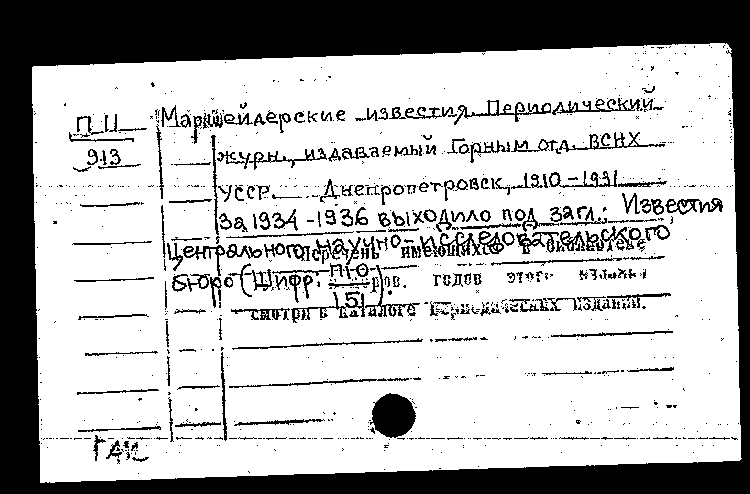 П II
913
Маркшейдерские известия. Периодический
журн., издаваемый Горным отд. ВСНХ
УССР. Днепропетровск, 1910-1931
За 1934-1936 выходило под загл.: Известия
Центрального научно-исследовательского
бюро (Шифр: П10/151).
Перечень имеющихся в библиотеке
годов этого издания
смотри в каталоге периодических изданий.
ГАК